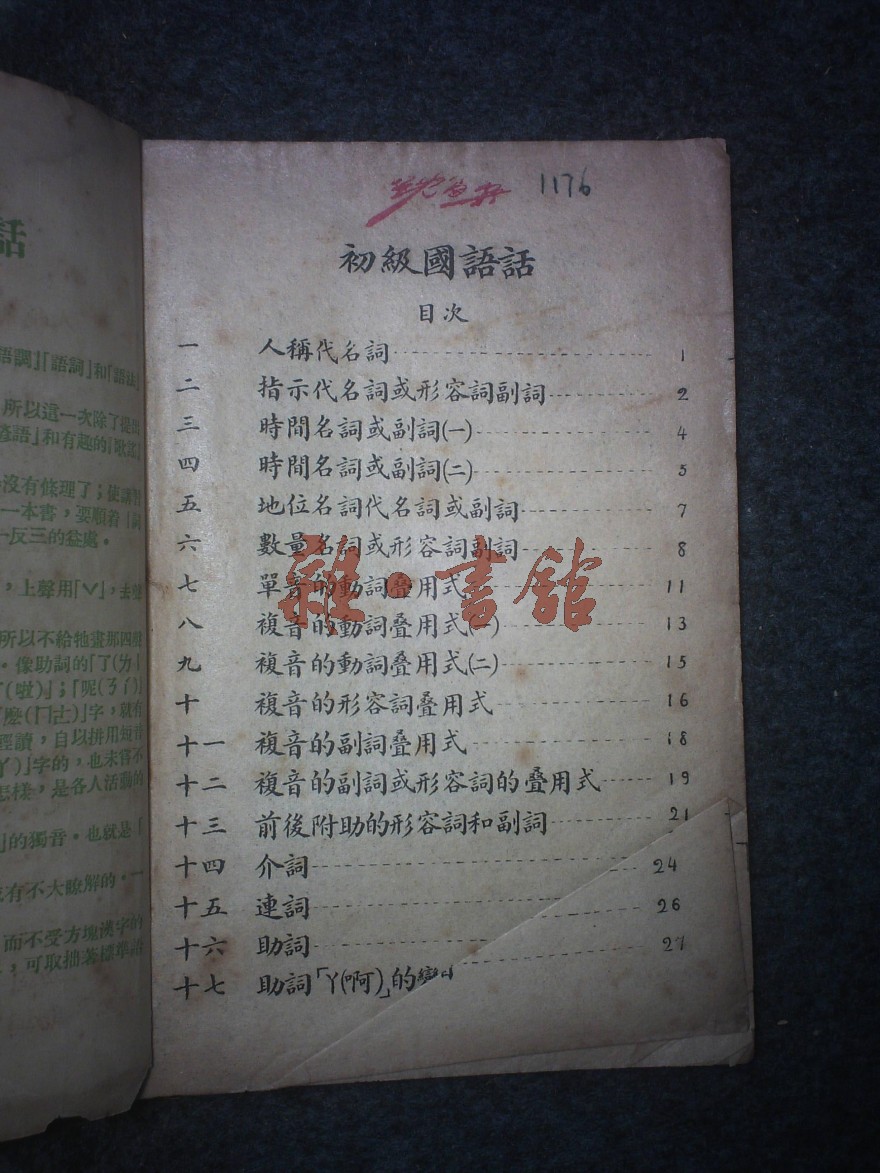 1176
初級國語話
目次
一 人稱代名詞 1
二 指示代名詞或形容詞副詞 2
三 時間名詞或副詞(一) 4
四 時間名詞或副詞(二) 5
五 地位名詞代名詞或副詞 7
六 數量名詞或形容詞副詞 8
七 單音的動詞叠用式 11
八 複音的動詞叠用式(一) 13
九 複音的動詞叠用式(二) 15
十 複音的形容詞叠用式 16
十一 複音的副詞叠用式 18
十二 複音的副詞或形容詞的叠用式 19
十三 前後附助的形容詞和副詞 21
十四 介詞 24
十五 連詞 26
十六 助詞 27
十七 助詞「ㄚ(啊)」的
雜·書館
話
語調」「語詞」和「語法」
所以這一次除了提
諺語」和有趣的「歌謠
沒有條理了;使讀
一本書,要順着「詞
一反三的益處。
,上聲用「ˇ」,去聲
所以不給牠畫那四聲
。像助詞的「了(ㄌㄧ
「(啦)」;「呢(ㄋㄧ)」
「麽(ㄇㄜ)」字,就有
輕讀,自以拼用短音
ㄚ)」字的,也未嘗不
怎樣,是各人活動的
」的獨音。也就是「
或有不大瞭解的。一
而不受方塊漢字的
,可取拙著標準語